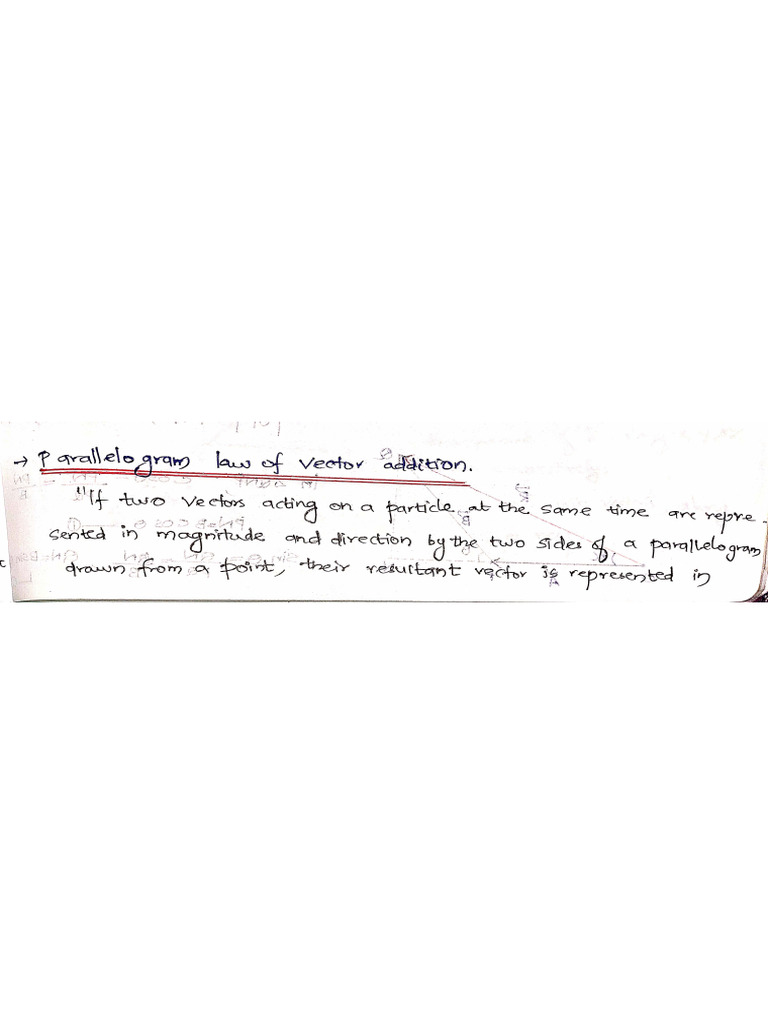 → Parallelogram law of vector addition.
"If two vectors acting on a particle at the same time are repre-
sented in magnitude and direction by the two sides of a parallelogram
drawn from a point, their resultant vector is represented in